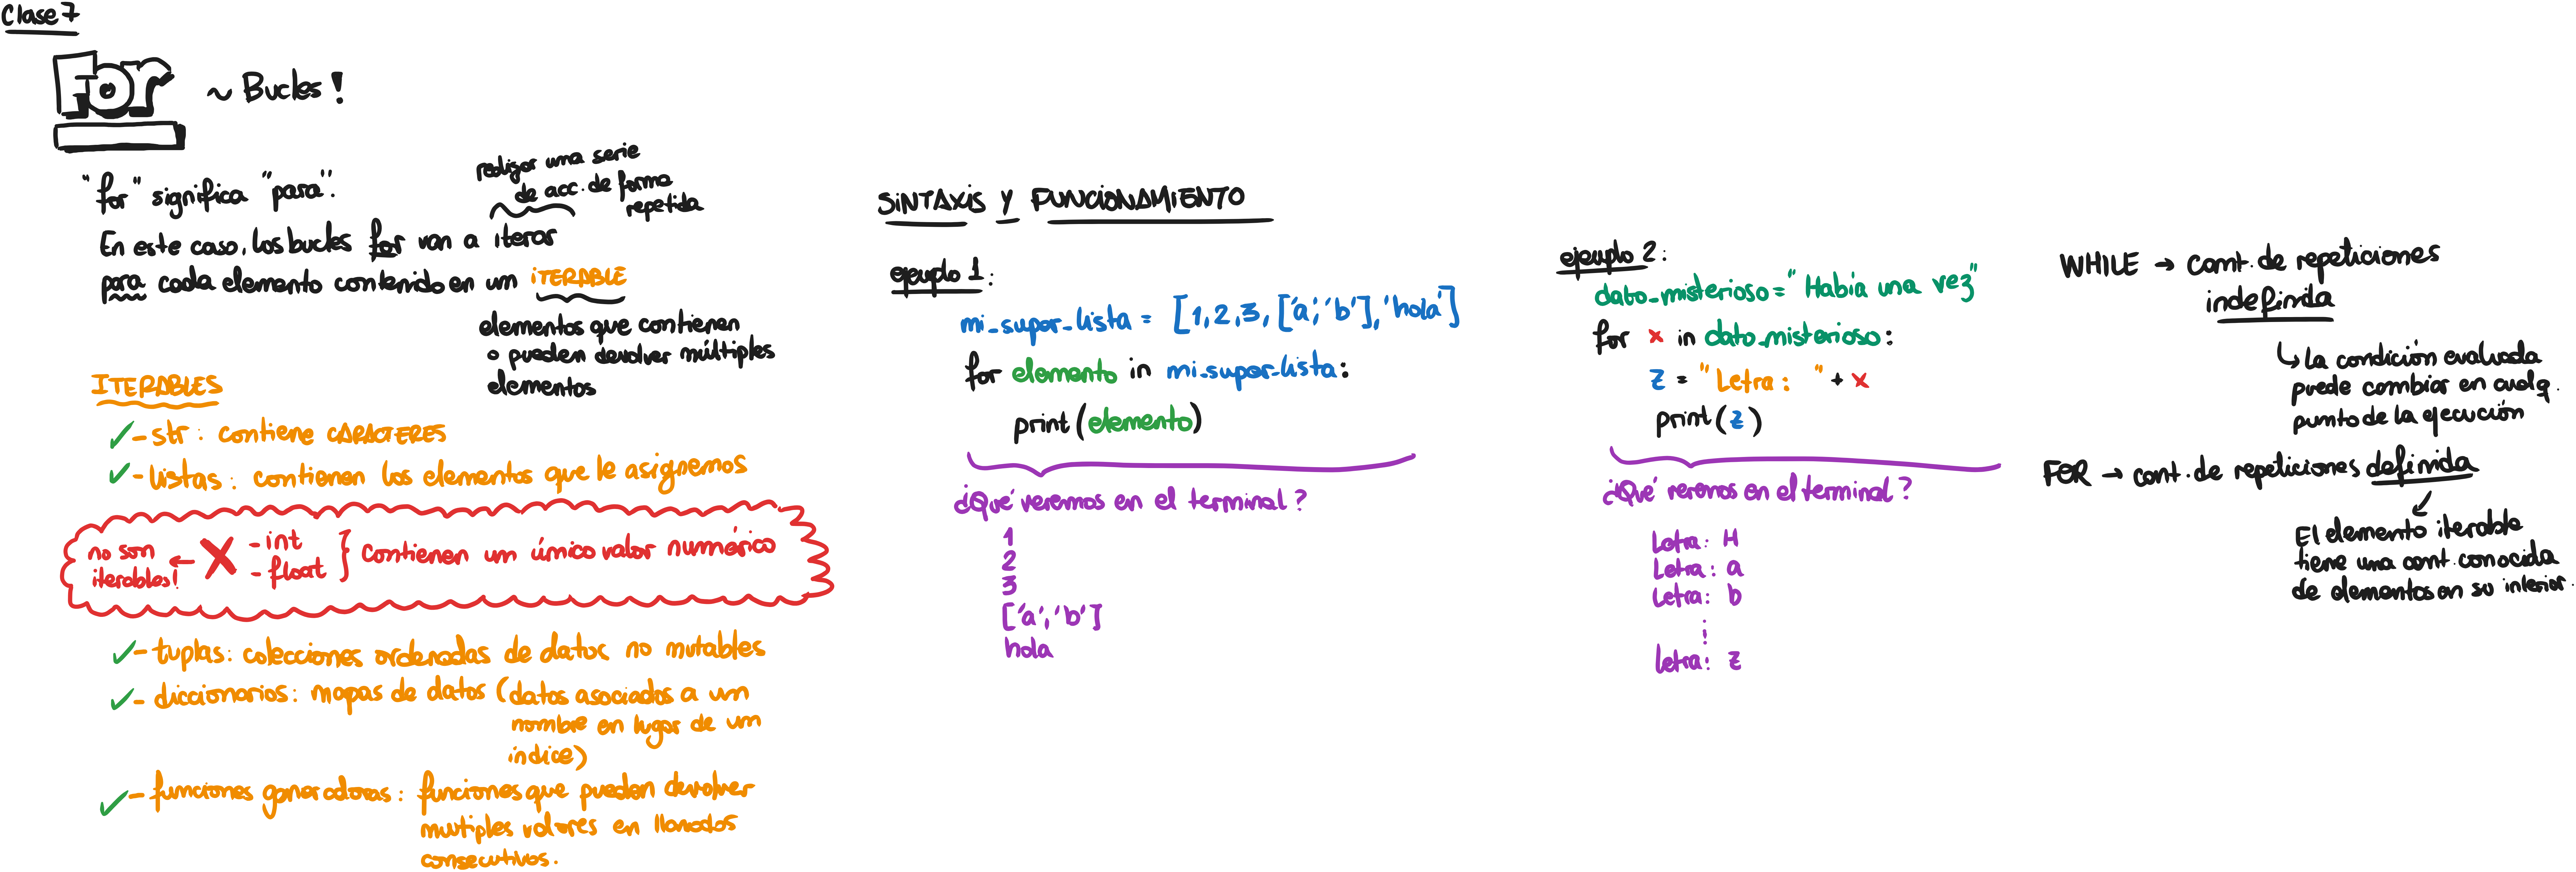 Clase 7
For ~ Bucles!
"for" significa "para":
realizar una serie
de acc. de forma
repetida
En este caso, los bucles for van a iterar
para cada elemento contenido en un iTERABLE
elementos que contienen
o pueden devolver múltiples
elementos
ITERABLES
✓ - str: contiene CARACTERES
✓ - listas: contienen los elementos que le asignemos
no son
iterables! ← X - int
- float } contienen un único valor numérico
✓ - tuplas: colecciones ordenadas de datos no mutables
✓ - diccionarios: mapas de datos (datos asociados a un
nombre en lugar de un
índice)
✓ - funciones generadoras: funciones que pueden devolver
multiples valores en llamados
consecutivos.
SiNTAXiS Y FUNCIONAMIENTO
ejemplo 1:
mi_super_lista = [1,2,3,['a','b'],'hola']
for elemento in mi_super_lista:
print(elemento)
¿Qué veremos en el terminal?
1
2
3
['a','b']
hola
ejemplo 2:
dato_misterioso = "Había una vez"
for x in dato_misterioso:
z = "Letra: " + x
print(z)
¿Qué veremos en el terminal?
Letra: H
Letra: a
Letra: b
⋮
Letra: z
WHILE → cant. de repeticiones
indefinida
↳ La condición evaluada
puede cambiar en cualq.
punto de la ejecución
FOR → cant. de repeticiones definida
El elemento iterable
tiene una cant. conocida
de elementos en su interior.